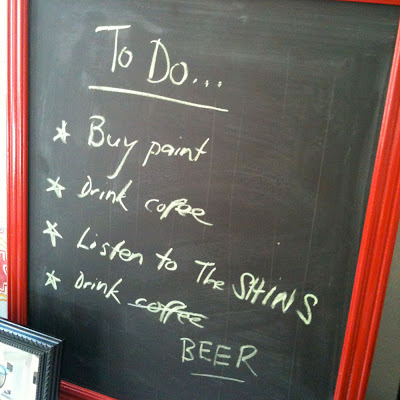 To Do...
* Buy paint
* Drink coffee
* Listen to The SHINS
* Drink coffee
BEER